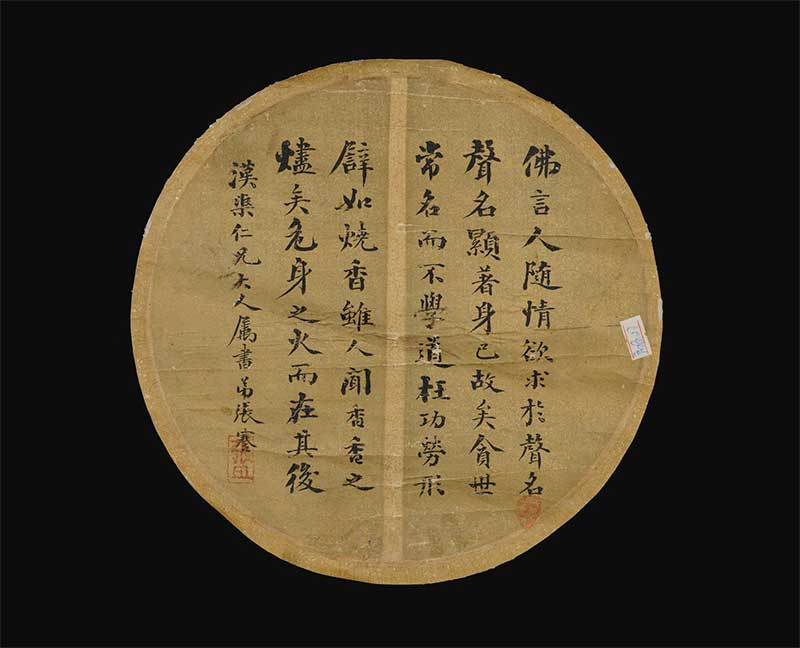 佛言人随情欲求於聲名
聲名顯著身已故矣貪世
常名而不學道枉功勞形
辟如燒香雖人聞香香之
燼矣危身之火而在其後
漢渠仁兄大人屬書弟張謇